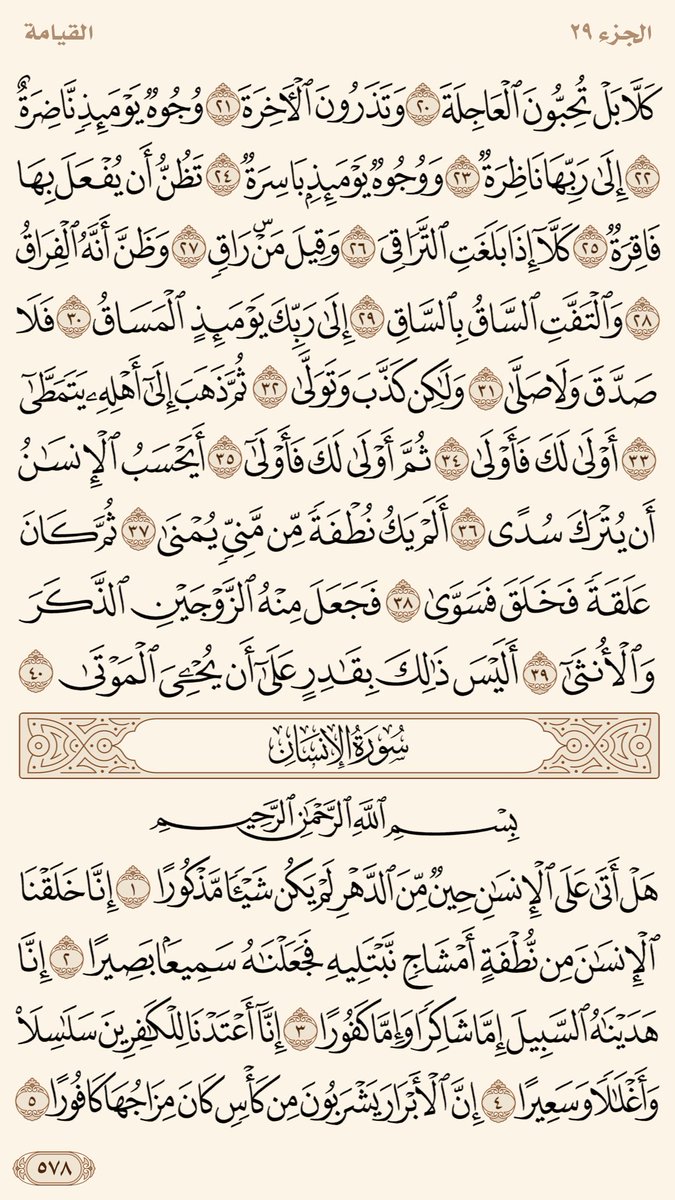 الجزء ٢٩
القيامة
كَلَّا بَلْ تُحِبُّونَ ٱلْعَاجِلَةَ ٢٠ وَتَذَرُونَ ٱلْأَخِرَةَ ٢١ وُجُوهٌ يَوْمَئِذٍ نَّاضِرَةٌ
٢٢ إِلَىٰ رَبِّهَا نَاظِرَةٌ ٢٣ وَوُجُوهٌ يَوْمَئِذٍۭ بَاسِرَةٌ ٢٤ تَظُنُّ أَن يُفْعَلَ بِهَا
فَاقِرَةٌ ٢٥ كَلَّآ إِذَا بَلَغَتِ ٱلتَّرَاقِىَ ٢٦ وَقِيلَ مَنْۜ رَاقٍ ٢٧ وَظَنَّ أَنَّهُ ٱلْفِرَاقُ
٢٨ وَٱلْتَفَّتِ ٱلسَّاقُ بِٱلسَّاقِ ٢٩ إِلَىٰ رَبِّكَ يَوْمَئِذٍ ٱلْمَسَاقُ ٣٠ فَلَا
صَدَّقَ وَلَا صَلَّىٰ ٣١ وَلَـٰكِن كَذَّبَ وَتَوَلَّىٰ ٣٢ ثُمَّ ذَهَبَ إِلَىٰٓ أَهْلِهِۦ يَتَمَطَّىٰٓ
٣٣ أَوْلَىٰ لَكَ فَأَوْلَىٰ ٣٤ ثُمَّ أَوْلَىٰ لَكَ فَأَوْلَىٰٓ ٣٥ أَيَحْسَبُ ٱلْإِنسَـٰنُ
أَن يُتْرَكَ سُدًى ٣٦ أَلَمْ يَكُ نُطْفَةً مِّن مَّنِىٍّ يُمْنَىٰ ٣٧ ثُمَّ كَانَ
عَلَقَةً فَخَلَقَ فَسَوَّىٰ ٣٨ فَجَعَلَ مِنْهُ ٱلزَّوْجَيْنِ ٱلذَّكَرَ
وَٱلْأُنثَىٰٓ ٣٩ أَلَيْسَ ذَٰلِكَ بِقَـٰدِرٍ عَلَىٰٓ أَن يُحْـِۧىَ ٱلْمَوْتَىٰ ٤٠
سُورَةُ الإِنسَانِ
بِسْمِ ٱللَّهِ ٱلرَّحْمَـٰنِ ٱلرَّحِيمِ
هَلْ أَتَىٰ عَلَى ٱلْإِنسَـٰنِ حِينٌ مِّنَ ٱلدَّهْرِ لَمْ يَكُن شَيْـًٔا مَّذْكُورًا ١ إِنَّا خَلَقْنَا
ٱلْإِنسَـٰنَ مِن نُّطْفَةٍ أَمْشَاجٍ نَّبْتَلِيهِ فَجَعَلْنَـٰهُ سَمِيعًۢا بَصِيرًا ٢ إِنَّا
هَدَيْنَـٰهُ ٱلسَّبِيلَ إِمَّا شَاكِرًا وَإِمَّا كَفُورًا ٣ إِنَّآ أَعْتَدْنَا لِلْكَـٰفِرِينَ سَلَـٰسِلَا۟
وَأَغْلَـٰلًا وَسَعِيرًا ٤ إِنَّ ٱلْأَبْرَارَ يَشْرَبُونَ مِن كَأْسٍ كَانَ مِزَاجُهَا كَافُورًا ٥
٥٧٨